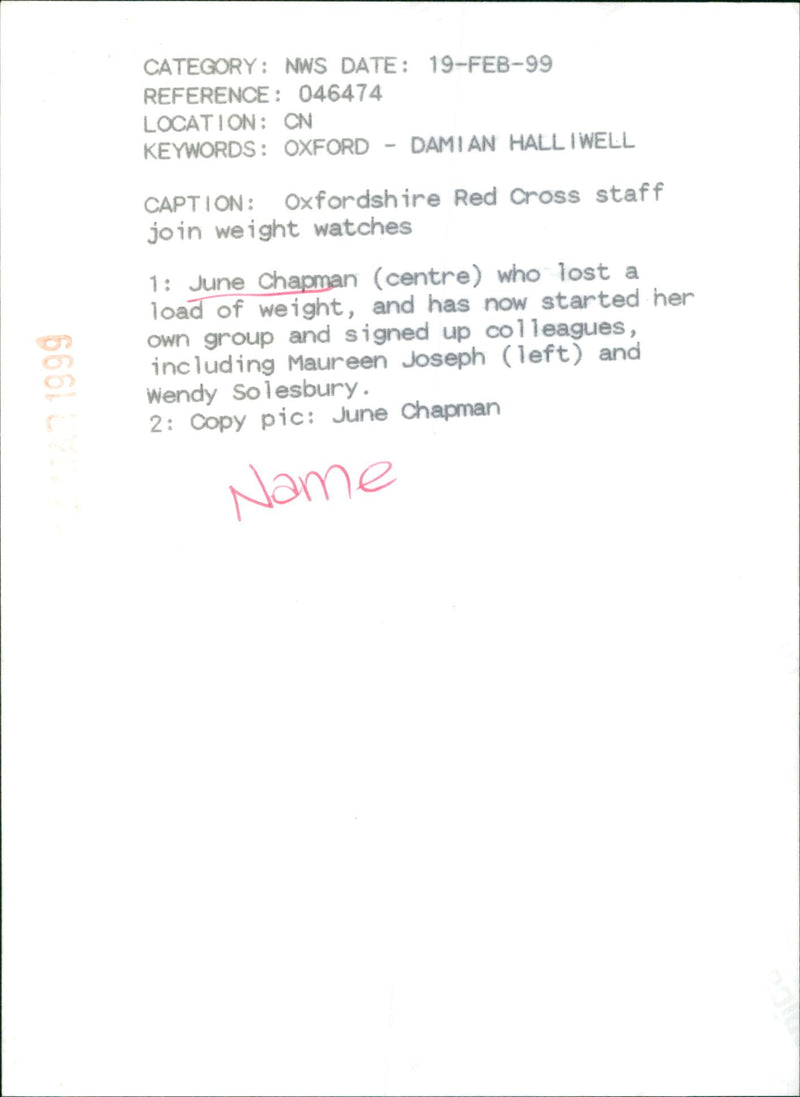 CATEGORY: NWS DATE: 19-FEB-99
REFERENCE: 046474
LOCATION: CN
KEYWORDS: OXFORD - DAMIAN HALLIWELL
CAPTION: Oxfordshire Red Cross staff
join weight watches
1: June Chapman (centre) who lost a
load of weight, and has now started her
own group and signed up colleagues,
including Maureen Joseph (left) and
Wendy Solesbury.
2: Copy pic: June Chapman
Name
1999